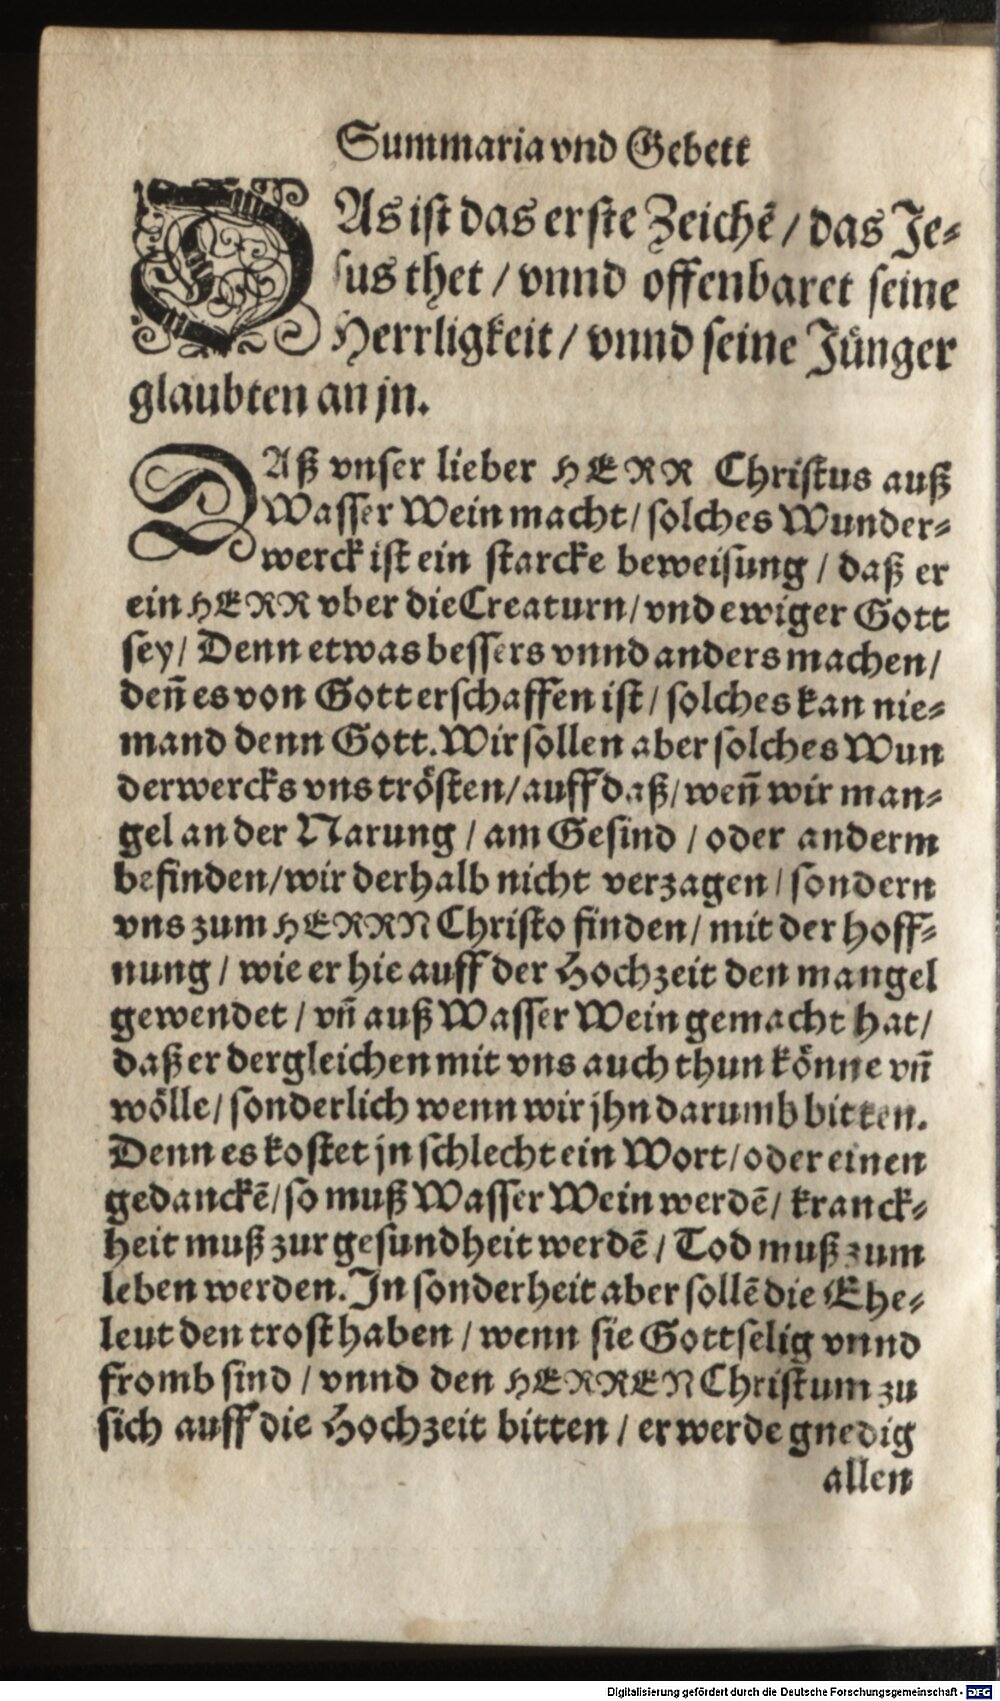 Summaria vnd Gebett
DAs ist das erste Zeichē / das Je⸗
sus thet / vnnd offenbaret seine
Herrligkeit / vnnd seine Jünger
glaubten an jn.
DAß vnser lieber HERR Christus auß
Wasser Wein macht / solches Wunder⸗
werck ist ein starcke beweisung / daß er
ein HERR vber die Creaturn / vnd ewiger Gott
sey / Denn etwas bessers vnnd anders machen /
den̄ es von Gott erschaffen ist / solches kan nie⸗
mand denn Gott. Wir sollen aber solches Wun
derwercks vns trösten / auff daß / wen̄ wir man⸗
gel an der Narung / am Gesind / oder anderm
befinden / wir derhalb nicht verzagen / sondern
vns zum HERRN Christo finden / mit der hoff⸗
nung / wie er hie auff der Hochzeit den mangel
gewendet / vn̄ auß Wasser Wein gemacht hat /
daß er dergleichen mit vns auch thun könne vn̄
wölle / sonderlich wenn wir jhn darumb bitten.
Denn es kostet jn schlecht ein Wort / oder einen
gedanckē / so muß Wasser Wein werdē / kranck⸗
heit muß zur gesundheit werdē / Tod muß zum
leben werden. In sonderheit aber sollē die Ehe⸗
leut den trost haben / wenn sie Gottselig vnnd
fromb sind / vnnd den HERREN Christum zu
sich auff die Hochzeit bitten / er werde gnedig
allen
Digitalisierung gefördert durch die Deutsche Forschungsgemeinschaft - DFG